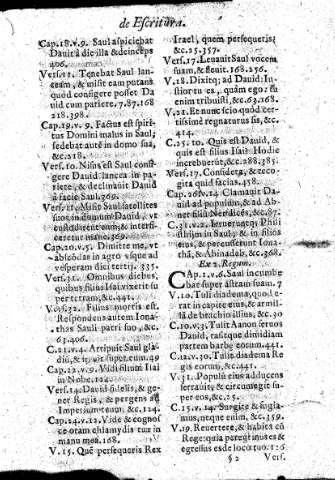 de Escritura.
Cap.18.v.9. Saul aspiciebat
Dauid à die illa & deinceps
406.
Vers.11. Tenebat Saul lan-
ceam, & misit eam putans
quod configere posset Da
uid cum pariete. 7.87.168
218.398.
Cap.19.v.9. Factus est spiri-
tus Domini malus in Saul,
sedebat autē in domo sua,
&c.218.
Vers.10. Nisus est Saul confi-
gere Dauid lancea in pa-
riete, & declinauit Dauid
à facie Saul.369.
Vers.11. Misit Saul satellites
suos in domum Dauid, vt
custodirent eum, & interfi-
ceretur mane.369.
Cap.20.v.5. Dimitte me, vt
abscōdas in agro vsque ad
vesperam diei tertij. 335.
Vers.31. Omnibus diebus,
quibus filius Isai vixerit su
per terram, &c.441.
Vers.32. Filius mortis est.
Respondens autem Iona-
thas Sauli patri suo, &c.
63.406.
C.21.v.4. Arripuit Saul gla-
diū, & irruit super eum 49
Cap.22.v.9. Vidi filium Isai
in Nobe.124.
Vers.14. Dauid fidelis, & ge-
ner Regis, & pergens ad
Imperium tuum &c.124.
Cap.24.v.12. Vide & cognos
ce oram chlamydis tuæ in
manu mea.168.
V.15. Quē persequeris Rex
Israel, quem persequeris,
&c.25.357.
Vers.17. Leuauit Saul vocem
suam, & fleuit. 168.256.
V.18. Dixitq; ad Dauid: Iu-
stior tu es, quàm ego: tu
enim tribuisti, &c.63.168.
V.21. Et nunc scio quòd cer-
tissimè regnaturus sis, &c.
414.
C.25.10. Quis est Dauid, &
quis est filius Isai? Hodie
increbuerūt, &c.288.385.
Vers.17. Considera, & reco-
gita quid facias.458.
Cap.26.v.14. Clamauit Da-
uid ad populum, & ad Ab-
ner filiū Ner dicēs, &c.87.
C.31.v.2. Irrueruntq; Phili
sthiim in Saul: & in filios
eius, & percusserunt Iona-
thā, & Abinadab, &c.368.
Ex 2. Regum.
CAp.1.v.6. Saul incumbe
bat super hastam suam. 7
V.10. Tuli diadema, quod e-
rat in capite eius, & armil-
lā de brachio illius, &c.30
C.10.v.3. Tulit Aanon seruos
Dauid, rasitque dimidiam
partem barbæ eorum.441.
C.12.v.30. Tulit diadema Re
gis eorum, &c.441.
V.31. Populū eius adducens
serrauit, & circumegit su-
per eos, &c.25.
C.15.v.14. Surgite & fugia-
mus, neque enim, &c.359.
V.19. Reuertere, & habita cū
Rege: quia peregrinus es &
egressus es de loco tuo.126
§ 2 Vers.